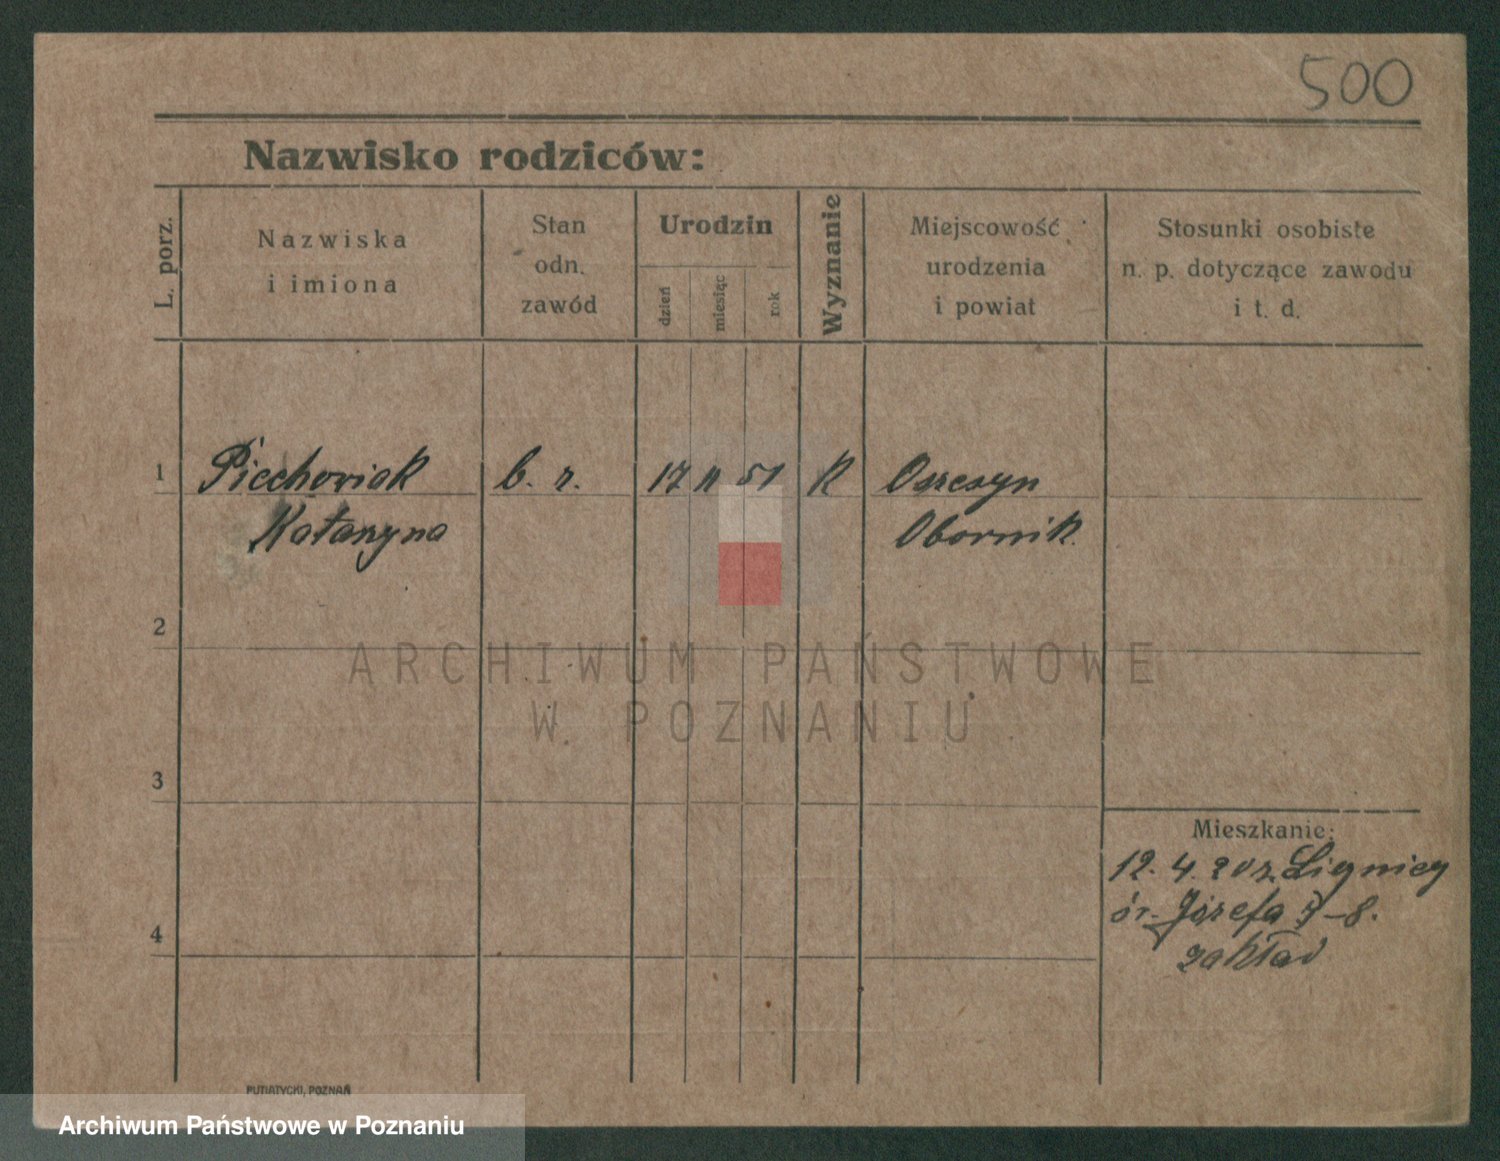 500
Nazwisko rodziców:
L. porz.
Nazwiska
i imiona
Stan
odn.
zawód
Urodzin
dzień
miesiąc
rok
Wyznanie
Miejscowość
urodzenia
i powiat
Stosunki osobiste
n. p. dotyczące zawodu
i t. d.
1 Piechowiak b. r. 17 11 51 K
Katarzyna Obornik.
2
ARCHIWUM PAŃSTWOWE
W POZNANIU
3
Mieszkanie:
12. 4. 20 z Lignicy
św. Józefa 7-8.
zakład
4
PUTIATYCKI, POZNAŃ
Archiwum Państwowe w Poznaniu